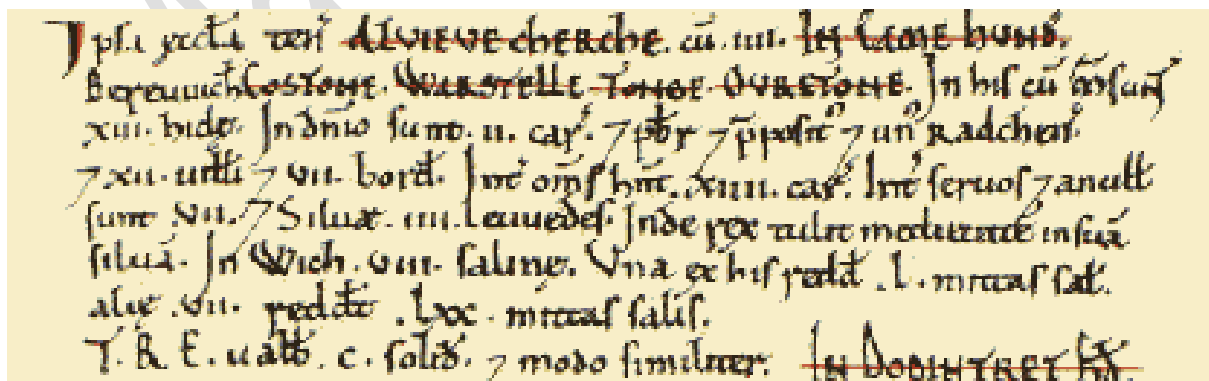 Ipsa æccła ten ALVIEVECHERCHE. cū. IIII. IN CAME HUND.
Bereuuich COSTONE. WARSTELLE TONGE. OVRETONE. In his cū m̄ sunt
XIII. hidę. In dn̄io sunt. II. car̃. ⁊ pb̄r ⁊ p̄posit⁹ ⁊ un⁹ Radchen̄.
⁊ XII. uiłłi ⁊ VII. bord̄. Int̄ om̄s hn̄t. XIIII. car̃. Int̄ seruos ⁊ ancill̄
sunt VII. ⁊ Siluæ. IIII. leuuedes. Inde rex tulit medietatē in suā
siluā. In Wich. VIII. salinę. Una ex his redd̄. L. mittas sal̄.
alię. VII. redd̄t. LXX. mittas salis.
T. R. E. ualb̄. C. solid̄. ⁊ modo similiter. IN DODINTRET HD̄.